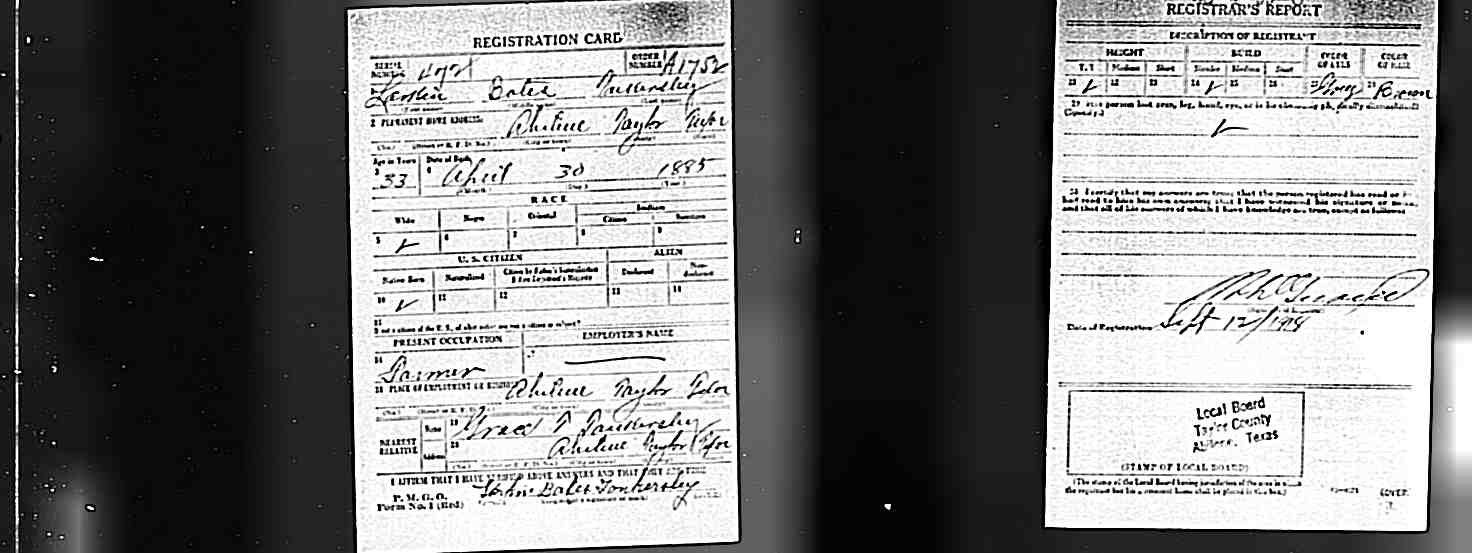 REGISTRATION CARD
SERIAL NUMBER 472 ORDER NUMBER A1752
Bates Tankersley
2 PERMANENT HOME ADDRESS: Abilene Taylor Texas
Age in Years Date of Birth
33 April 30 1885
(Month) (Day) (Year)
RACE
White Negro Oriental Indian
Citizen
5 ✓ 6 7 8 9
U. S. CITIZEN ALIEN
Native Born Naturalized Citizen by Father's Naturalization Declarant Non-declarant
10 ✓ 11 12 13 14
15
If not a citizen of the U. S., of what nation are you a citizen or subject?
PRESENT OCCUPATION EMPLOYER'S NAME
Farmer
18 PLACE OF EMPLOYMENT OR BUSINESS: Abilene Taylor Texas
NEAREST RELATIVE Name 19 Grace T Tankersley
Address 20 Abilene Taylor Texas
I AFFIRM THAT I HAVE VERIFIED ABOVE ANSWERS AND THAT THEY ARE TRUE
P. M. G. O.
Form No. 1 (Red) Bates Tankersley
REGISTRAR'S REPORT
DESCRIPTION OF REGISTRANT
HEIGHT BUILD COLOR OF EYES COLOR OF HAIR
Tall Medium Short Slender Medium Stout
21 ✓ 22 23 24 ✓ 25 26 27 Gray 28 Brown
29 Has person lost arm, leg, hand, eye, or is he obviously physically disqualified?
(Specify.)
✓
30 I certify that my answers are true; that the person registered has read or
had read to him his own answers; that I have witnessed his signature or mark,
and that all of his answers of which I have knowledge are true, except as follows:
Date of Registration Sept 12/1918
Local Board
Taylor County
Abilene, Texas
(STAMP OF LOCAL BOARD)
(The stamp of the Local Board having jurisdiction of the area in which
the registrant has his permanent home shall be placed in this box.)
(OVER)